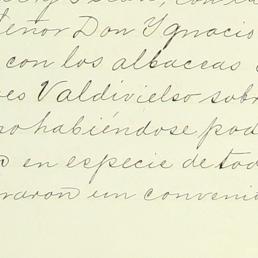 Señor Don Ygnacio
con los albaceas
es Valdivielso sobr
so habiéndose pod
en especie de tod
raron un conveni